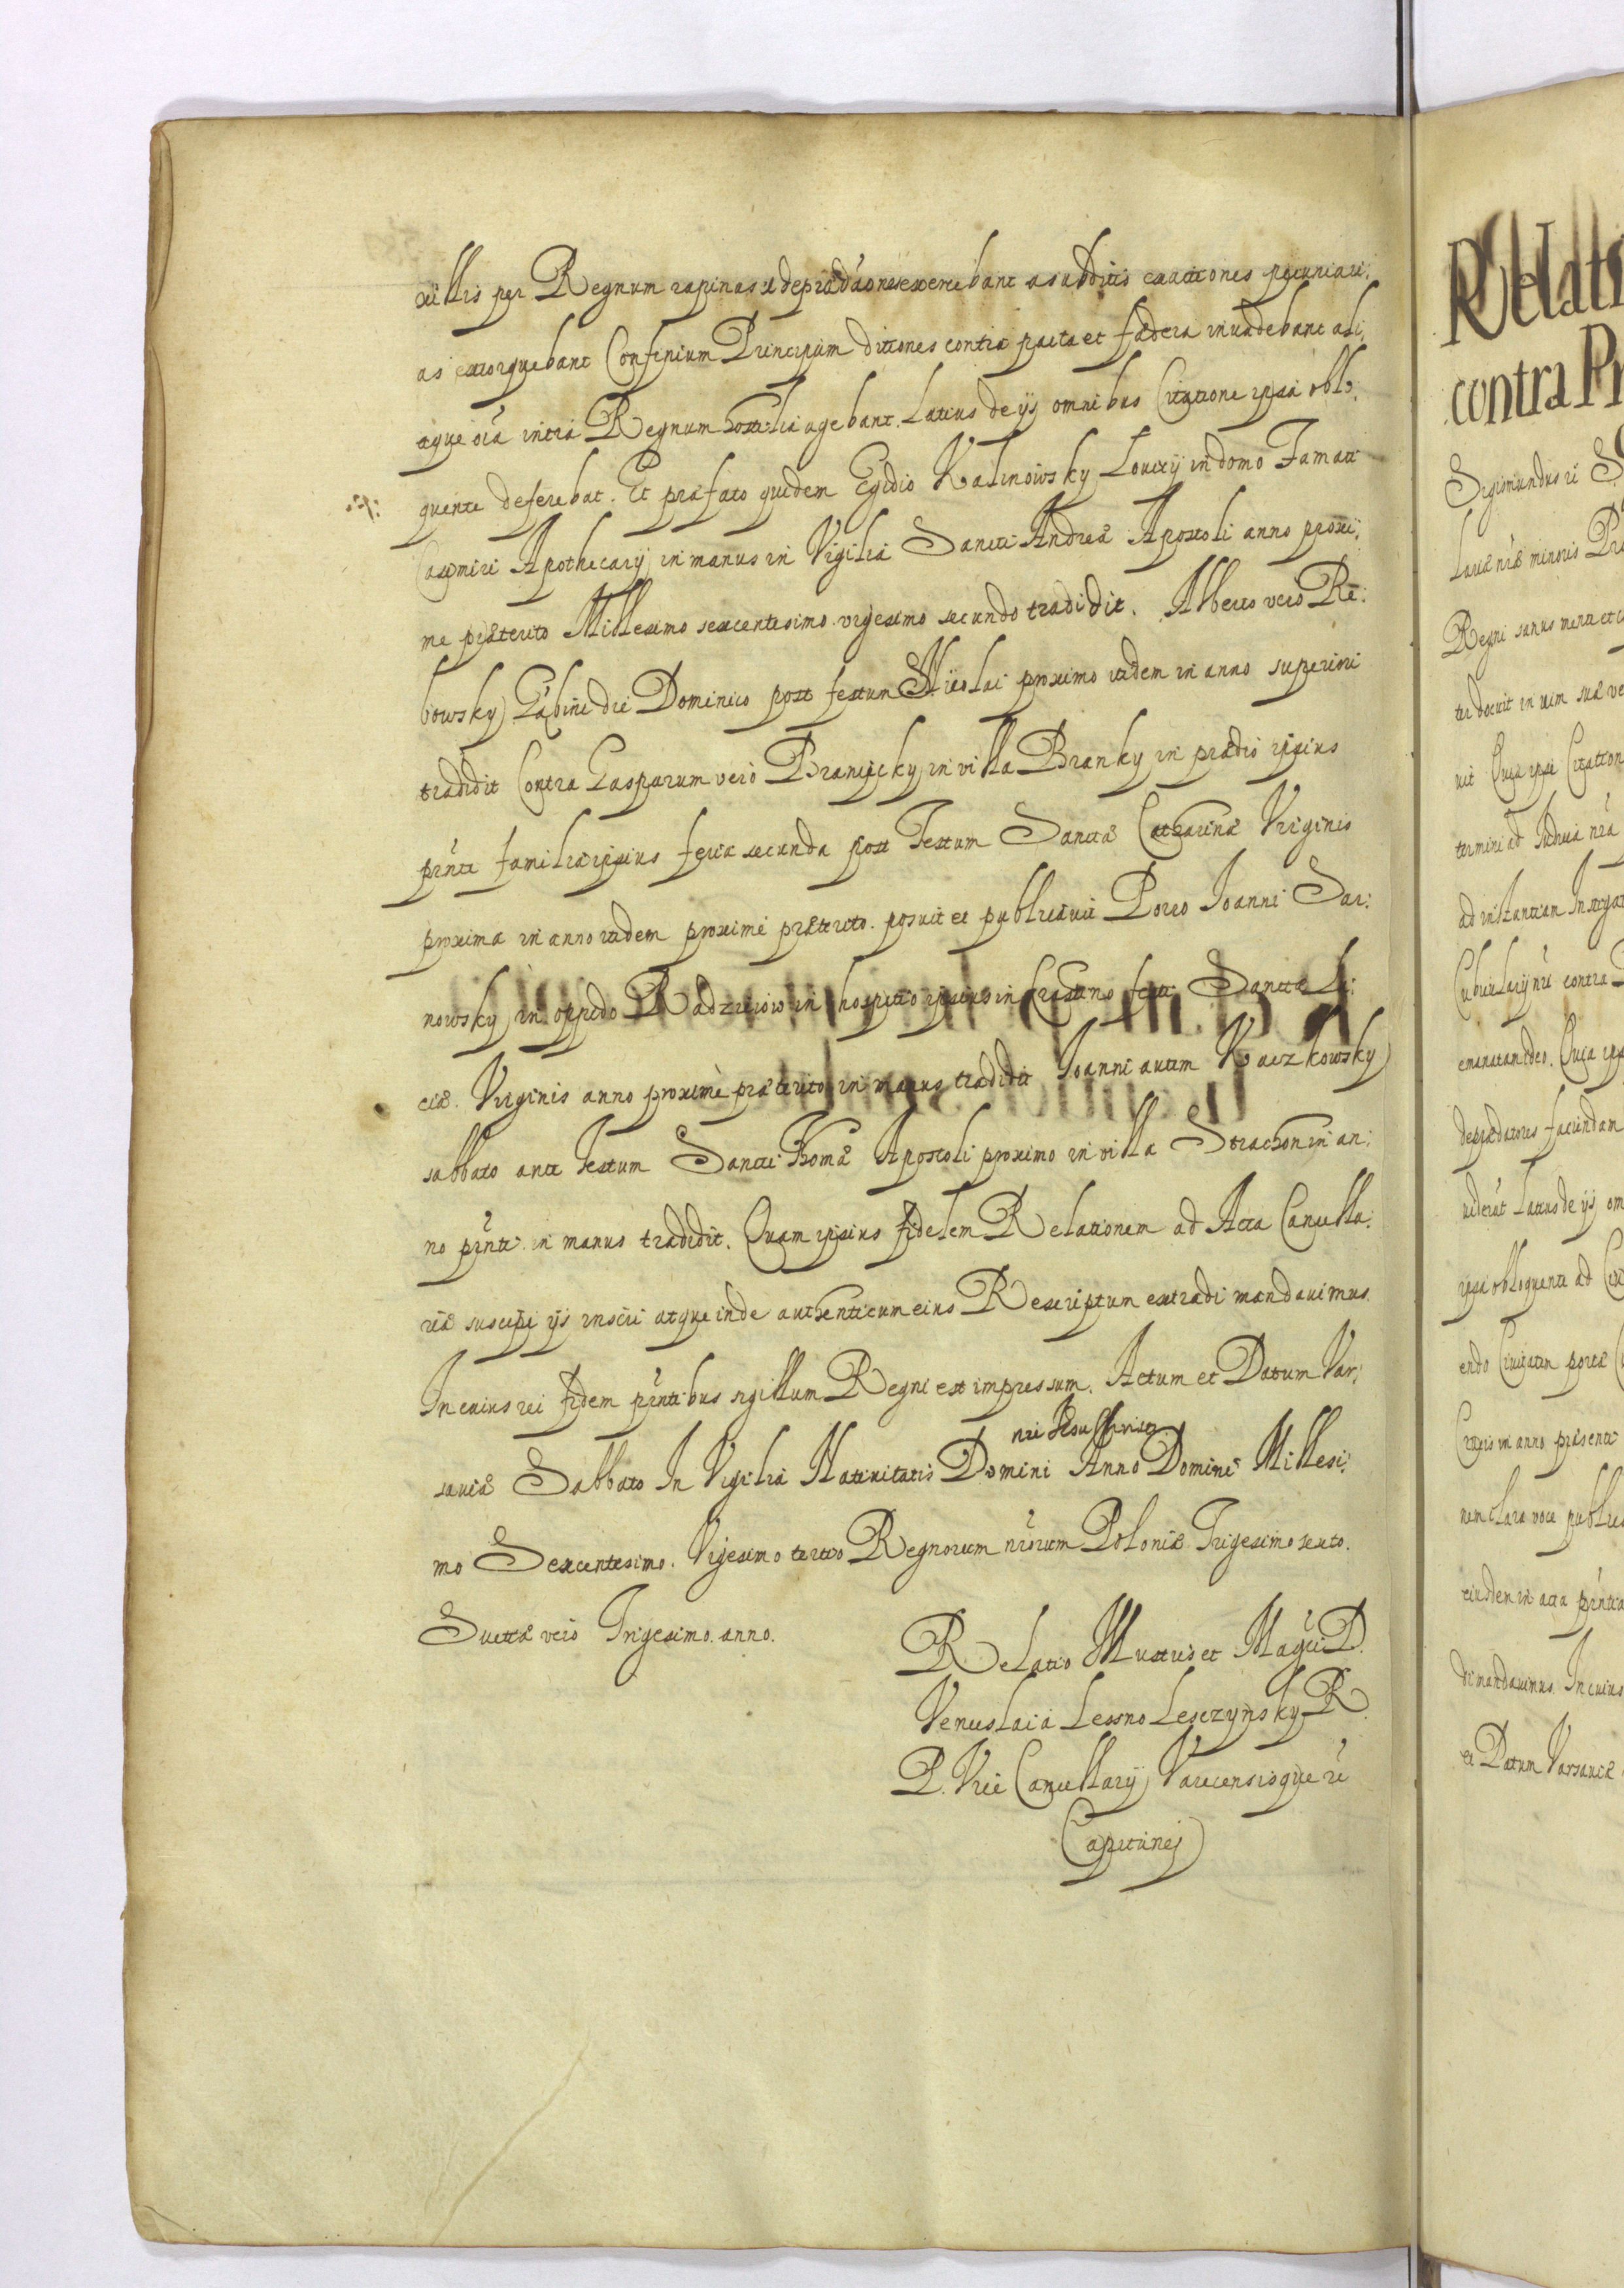 xillis per Regnum rapinas et deprædãones exercebant a subditis exactiones pecuniari:
as extorquebant Confinium Principum ditiones contra pacta et fædera invadebant ali:
aque oĩa intra Regnum hostilia agebant. Latius de ijs omnibus Citatione ipsa oblo:
quente deferebat. Et præfato quidem Egidio Kalinowsky Lovicij in domo Famati
Casimiri Apothecarij in manus in Vigilia Sancti Andreæ Apostoli anno proxi:
me præterito Millesimo sexcentesimo vigesimo secundo tradidit. Alberto vero Rę:
bowsky Gąbini die Dominico post festum Nicolai proximo itidem in anno superiori
tradidit Contra Gasparum vero Branicky in villa Branky in prædio ipsius
pñte familia ipsius feria secunda post Festum Sanctæ Catharinæ Virginis
proxima in anno itidem proxime præterito. posuit et publicavit Porro Joanni Sar:
nowsky in oppido Radzieiow in hospitio ipsius in Crastino festi Sanctæ Lu:
ciæ. Virginis anno proximè præterito in manus tradidit Joanni autem Kaczkowsky
sabbato ante Festum Sancti Thomæ Apostoli proximo in villa Strachonin an:
no pñti in manus tradidit. Quam ipsius fidelem Relationem ad Acta Cancella:
riæ suscipi ijs inscri atque inde authenticum eius Rescriptum extradi mandavimus.
In cuius rei fidem pñtibus sigillum Regni est impressum. Actum et Datum Var:
nri Jesu Christi
saviæ Sabbato In Vigilia Nativitatis Domini Anno Domini Millesi:
mo Sexcentesimo. Vigesimo tertio Regnorum nrorum Poloniæ Trigesimo sexto.
Suetiæ vero Trigesimo. anno.
Relatio Illustris et Magci D.
Venceslai à Lessno Lesczynsky R.
P. Vice Cancellarij Varecensisque etc
Capitanej
Relati
contra Pr
Sigismundus
Lariæ nræ minoris
Regni sanus mente et
ter docuit in vim suæ
vit Quia ipse Citation
termini ad Iudicia nra
ad instantiam Instiga
contra
emanatam ideo. Quia
deprædatores faciundam
Latius de ijs om
ipsa obloquente ad
endo Civitatem
in anno præsenti
nem clara voce public
eiusdem in acta pñtia
di mandavimus. In cuius
et Datum Varsaviæ